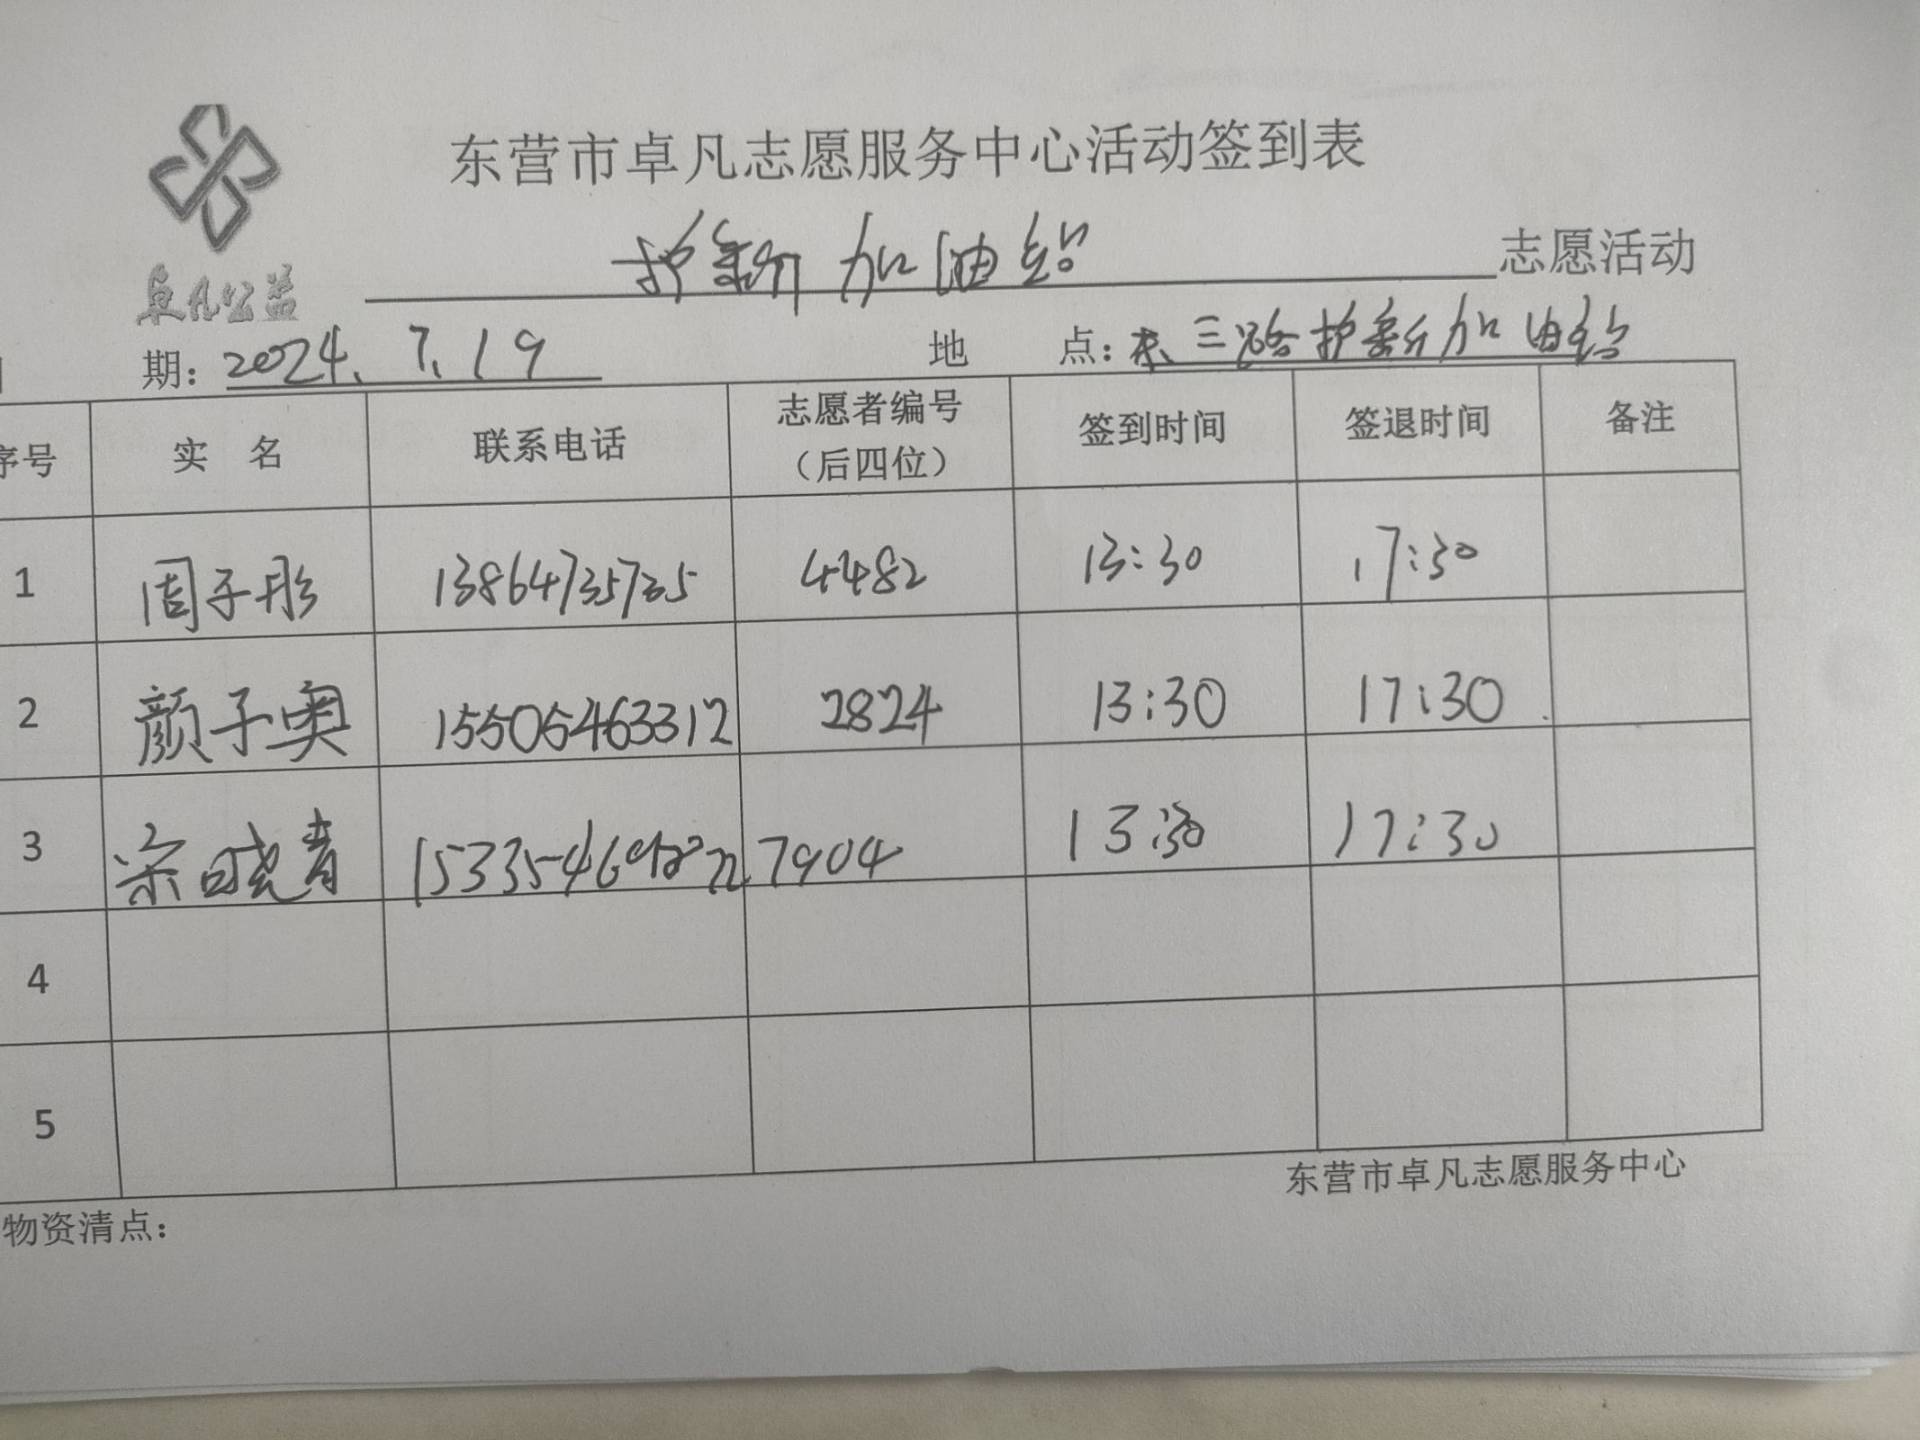 东营市卓凡志愿服务中心活动签到表
卓凡公益
护新加油站 志愿活动
期：2024.7.19 地 点：东三路护新加油站
序号 实 名 联系电话 志愿者编号（后四位） 签到时间 签退时间 备注
1 周子彤 13864735735 4482 13:30 17:30
2 颜子奥 15505463312 2824 13:30 17:30
3 宗晓青 7904 13:30 17:30
4
5
东营市卓凡志愿服务中心
物资清点：